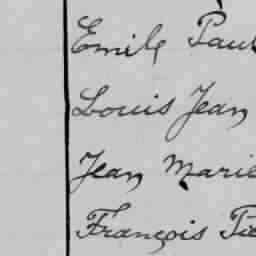 Emile Paul
Louis Jean
Jean Marie
François